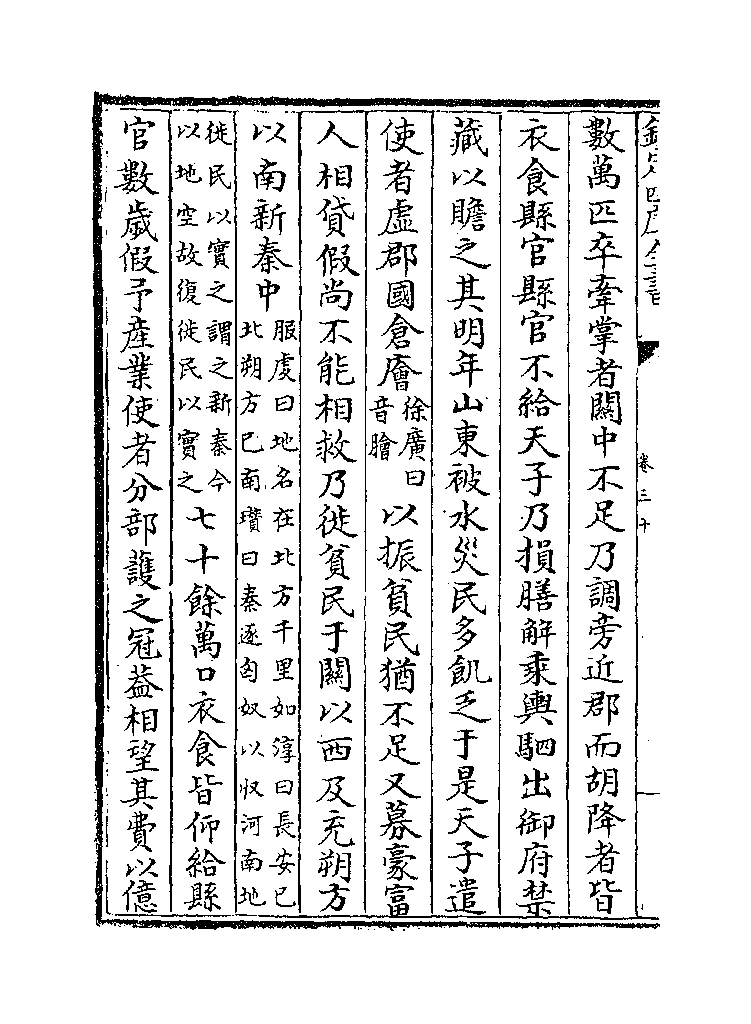 欽定四庫全書
卷三十
數萬匹卒牽掌者關中不足乃調旁近郡而胡降者皆
衣食縣官縣官不給天子乃損膳解乘輿駟出御府禁
藏以贍之其明年山東被水災民多飢乏于是天子遣
使者虛郡國倉廥徐廣曰音膾以振貧民猶不足又募豪富
人相貸假尚不能相救乃徙貧民于關以西及充朔方
以南新秦中服虔曰地名在北方千里如淳曰長安已北朔方已南瓚曰秦逐匈奴以收河南地
徙民以實之謂之新秦今以地空故復徙民以實之七十餘萬口衣食皆仰給縣
官數歲假予產業使者分部護之冠蓋相望其費以億